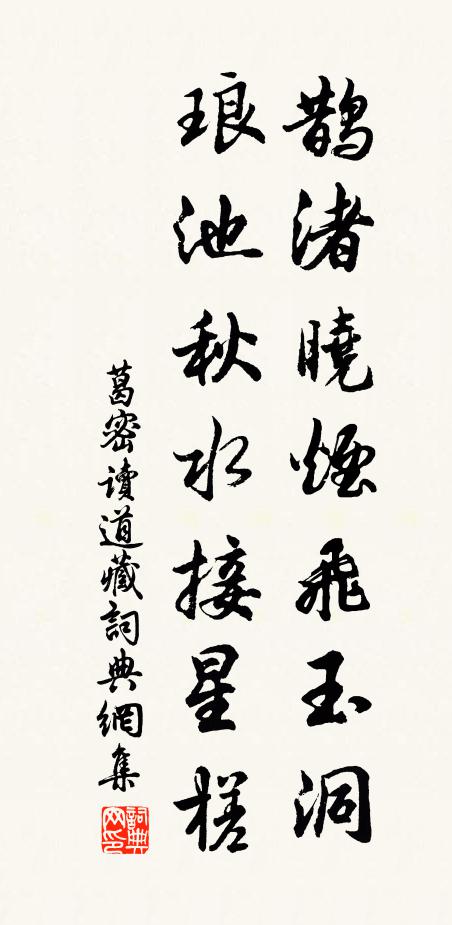 鵲渚曉煙飛玉洞
琅池秋水接星槎
葛密读道藏詞典網集
詞典
网印